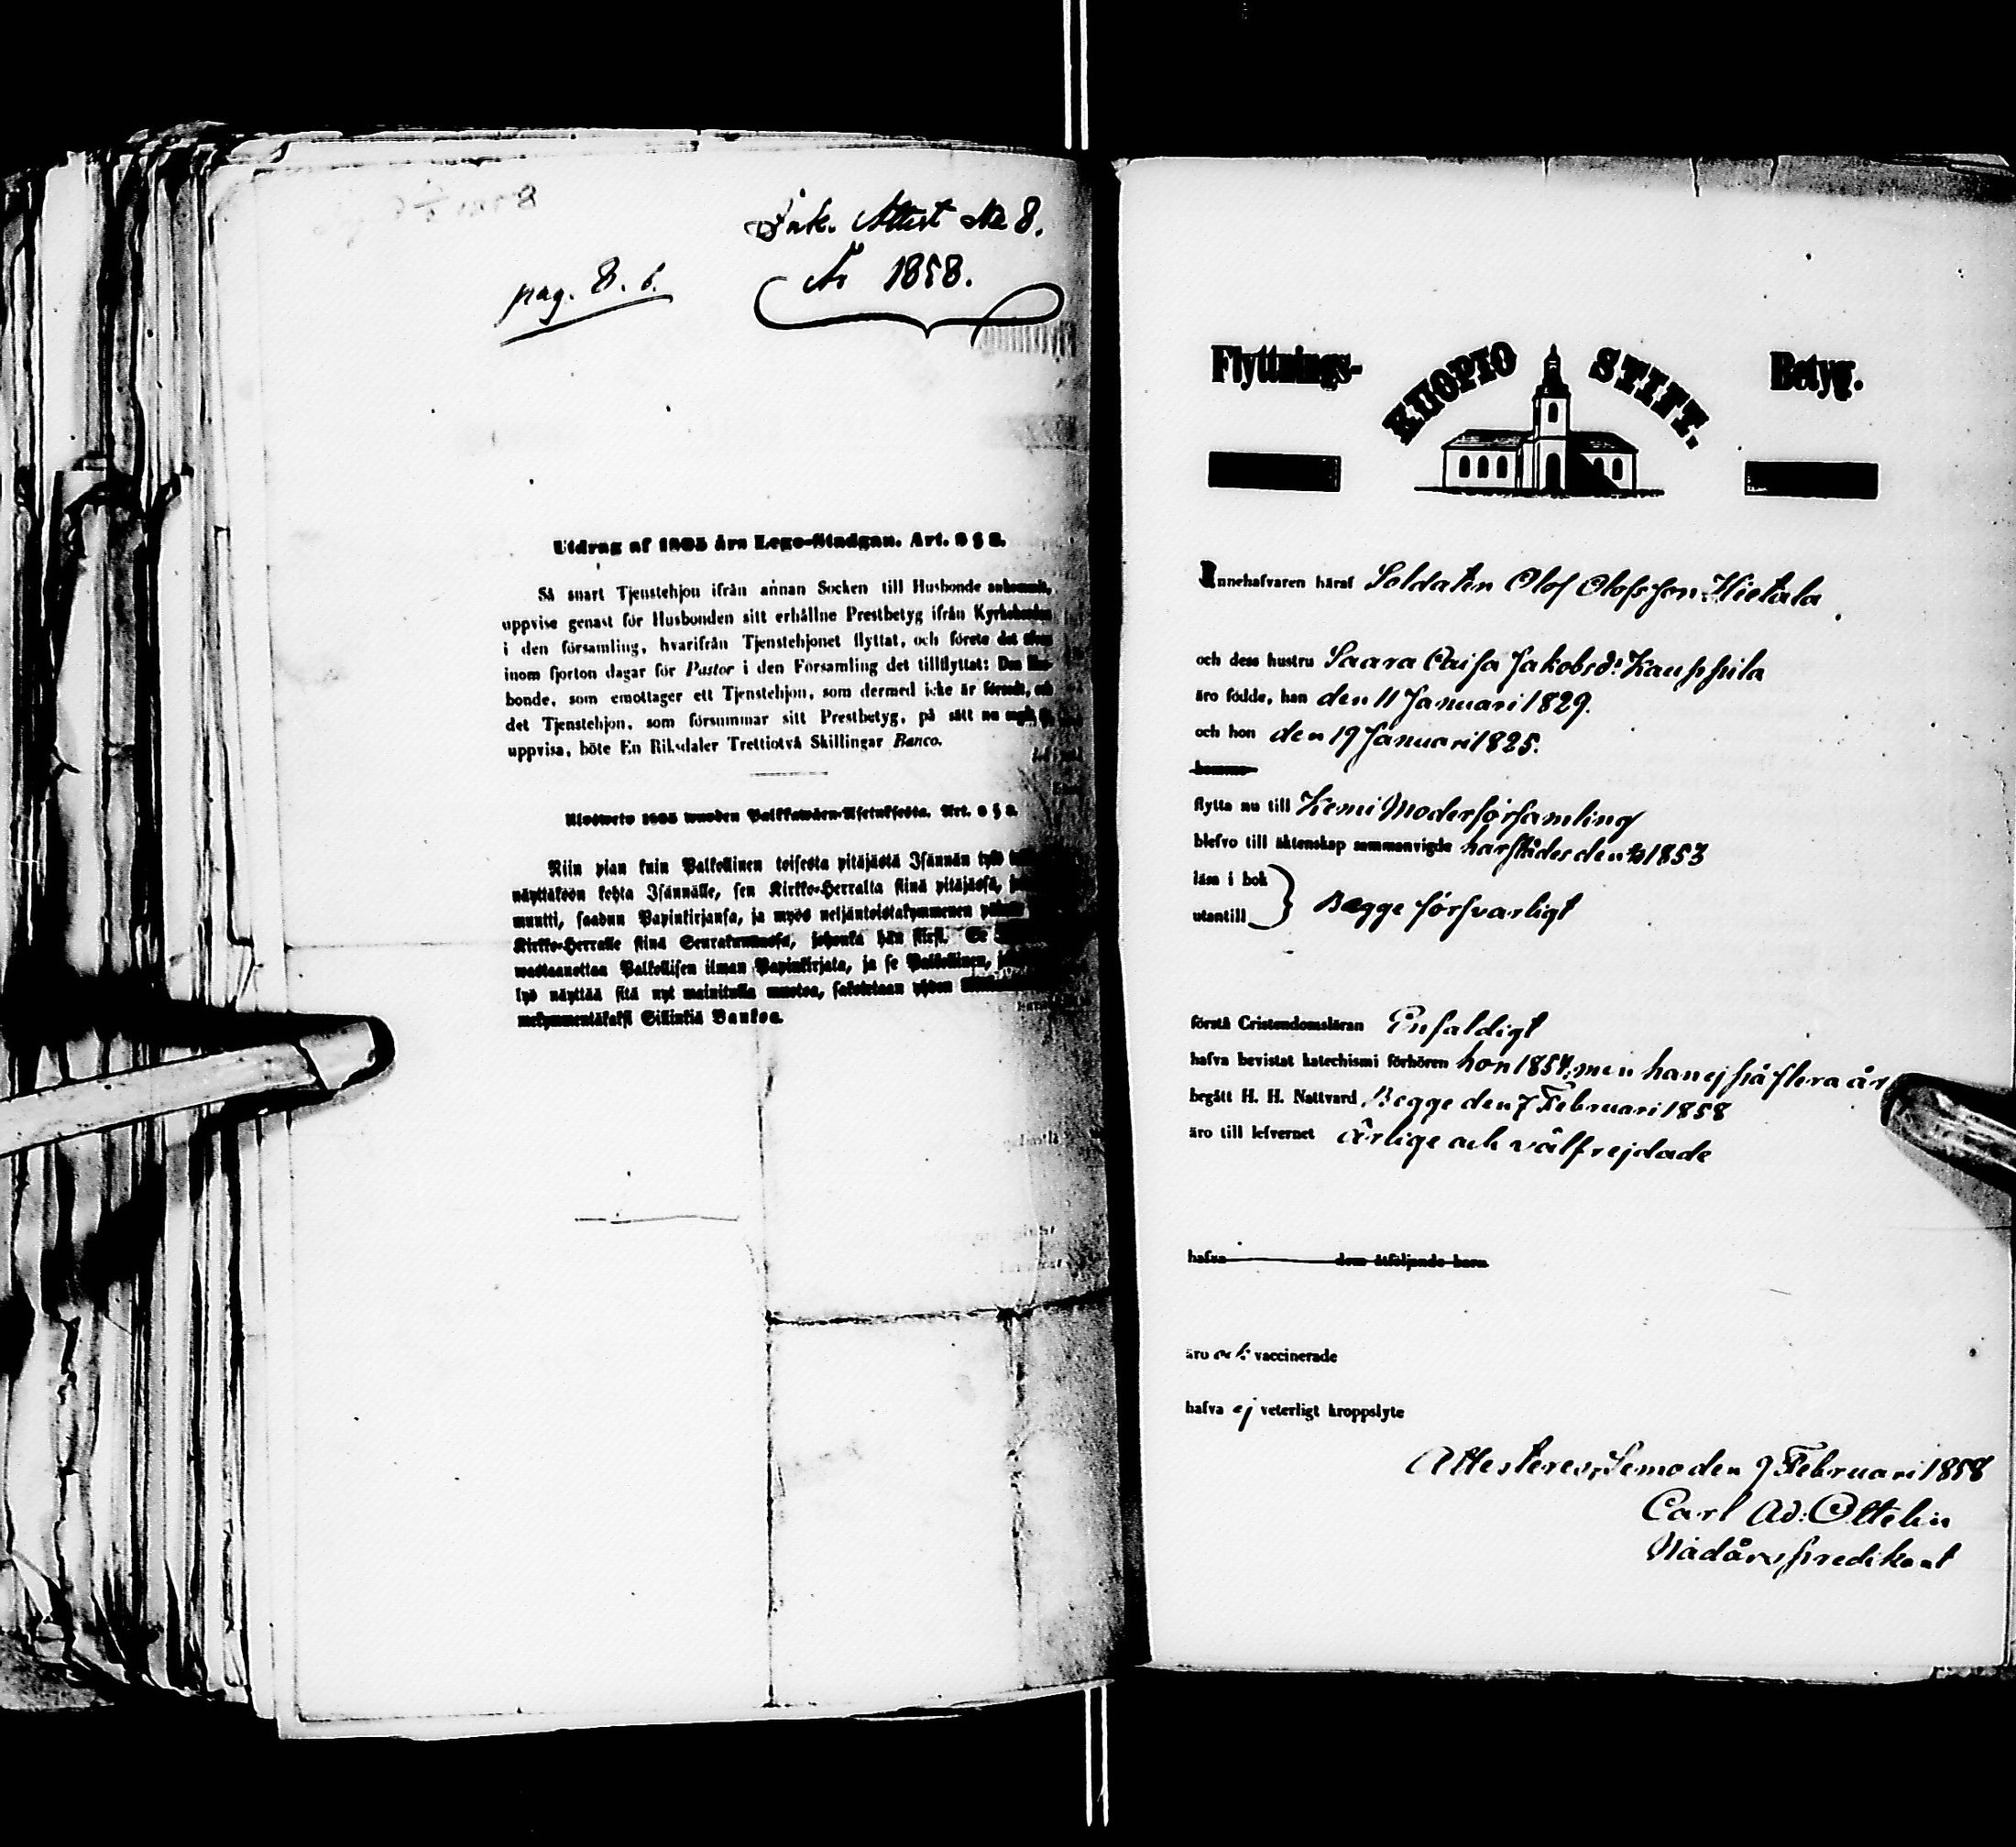 Ink. Attest No 8.
År 1858.
pag. 8. b.
Utdrag af 1805 års Lego-Stadgan. Art. § 2.
Så snart Tjenstehjon ifrån annan Socken till Husbonde ankommit,
uppvise genast för Husbonden sitt erhållne Prestbetyg ifrån
i den församling, hvarifrån Tjenstehjonet flyttat, och förete det
inom fjorton dagar för Pastor i den Församling det tillflyttat: Den Hus-
bonde, som emottager ett Tjenstehjon, som dermed icke är försedt, och
det Tjenstehjon, som försummar sitt Prestbetyg, på sätt nu
uppvisa, böte En Riksdaler Trettiotvå Skillingar Banco.
Ulosweto 1805 wuoden Palkkawäen-Asetuksesta. Art. § 2.
Niin pian kuin Palkollinen toisesta pitäjästä Isännän tykö
näyttäköön kohta Isännälle, sen Kirkko-Herralta siinä pitäjässä,
muutti, saadun Papinkirjansa, ja myös neljäntoistakymmenen
Kirkko-Herralle siinä Seurakunnassa, johonka hän siirsi. Se
wastaanottaa Palkollisen ilman Papinkirjata, ja se Palkollinen,
lyö näyttää sitä nyt mainitulla muotoa, sakotetaan yhden
mekymmentäkaksi Sillinkiä Bankoa.
Flyttnings- KUOPIO STIFT. Betyg.
Innehafvaren häraf Soldaten Olof Olofsson Hietala
och dess hustru Saara Caisa Jakobsd: Kauppila
äro födde, han den 11 Januari 1829.
och hon den 19 Januari 1825.
komme
flytta nu till Kemi Moderförsamling
blefvo till äktenskap sammanvigde härstädes den 1853
läsa i bok
utantill } Begge försvarligt
förstå Cristendomsläran Enfaldigt
hafva bevistat katechismi förhören hon 1857, men han ej på flera år
begått H. H. Nattvard Begge den 7 Februari 1858
äro till lefvernet ärlige och välfrejdade
hafva dem åtföljande barn
äro ock vaccinerade
hafva ej veterligt kroppslyte
Attesteras, Simo den 9 Februari 1858
Carl Ad: Ottelin
Nådårspredikant